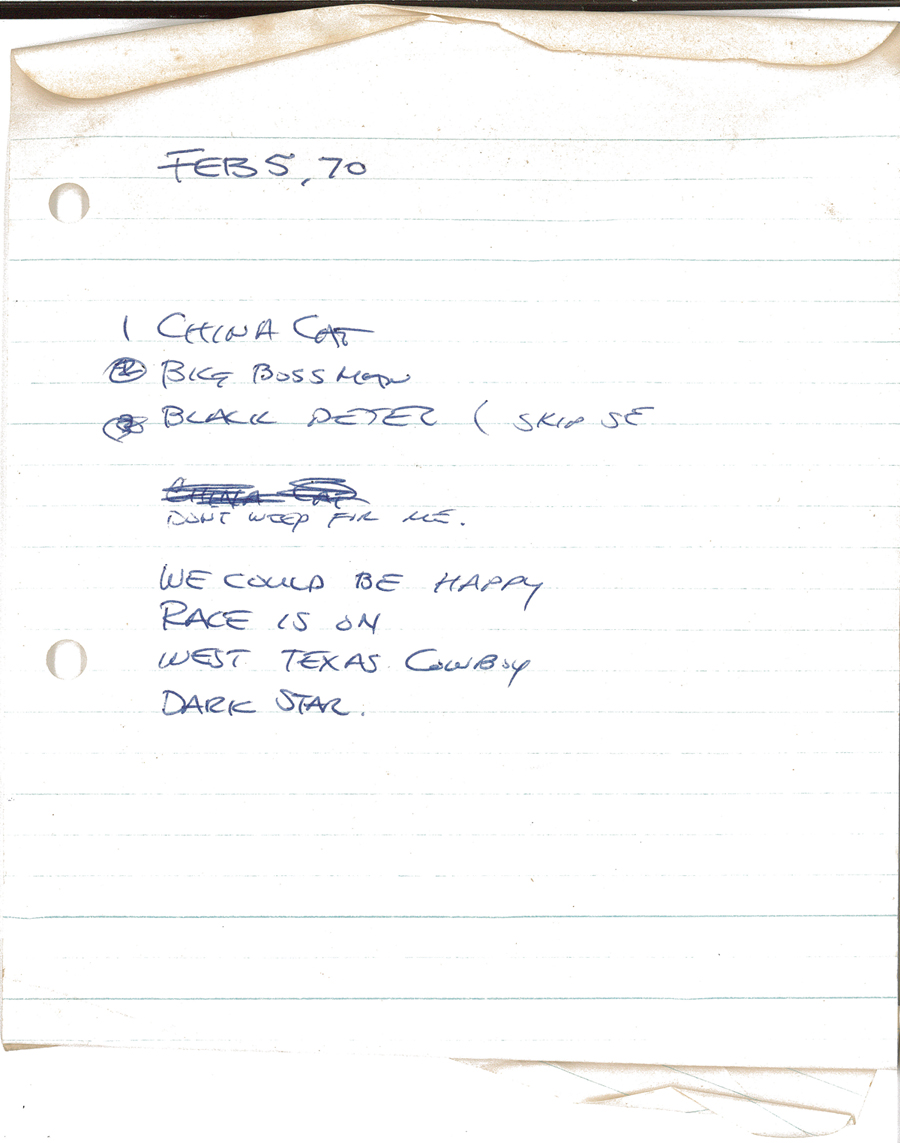 FEB 5, 70
1 CHINA CAT
2 BIG BOSS MAN
3 BLACK PETER ( SKIP SE
CHINA CAT
DONT WEEP FOR ME.
WE COULD BE HAPPY
RACE IS ON
WEST TEXAS COWBOY
DARK STAR.